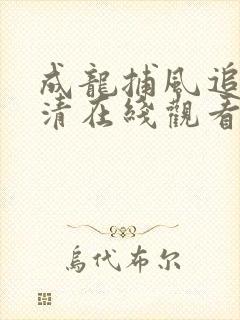 成龍捕風追
清在綫觀看
烏代布尔